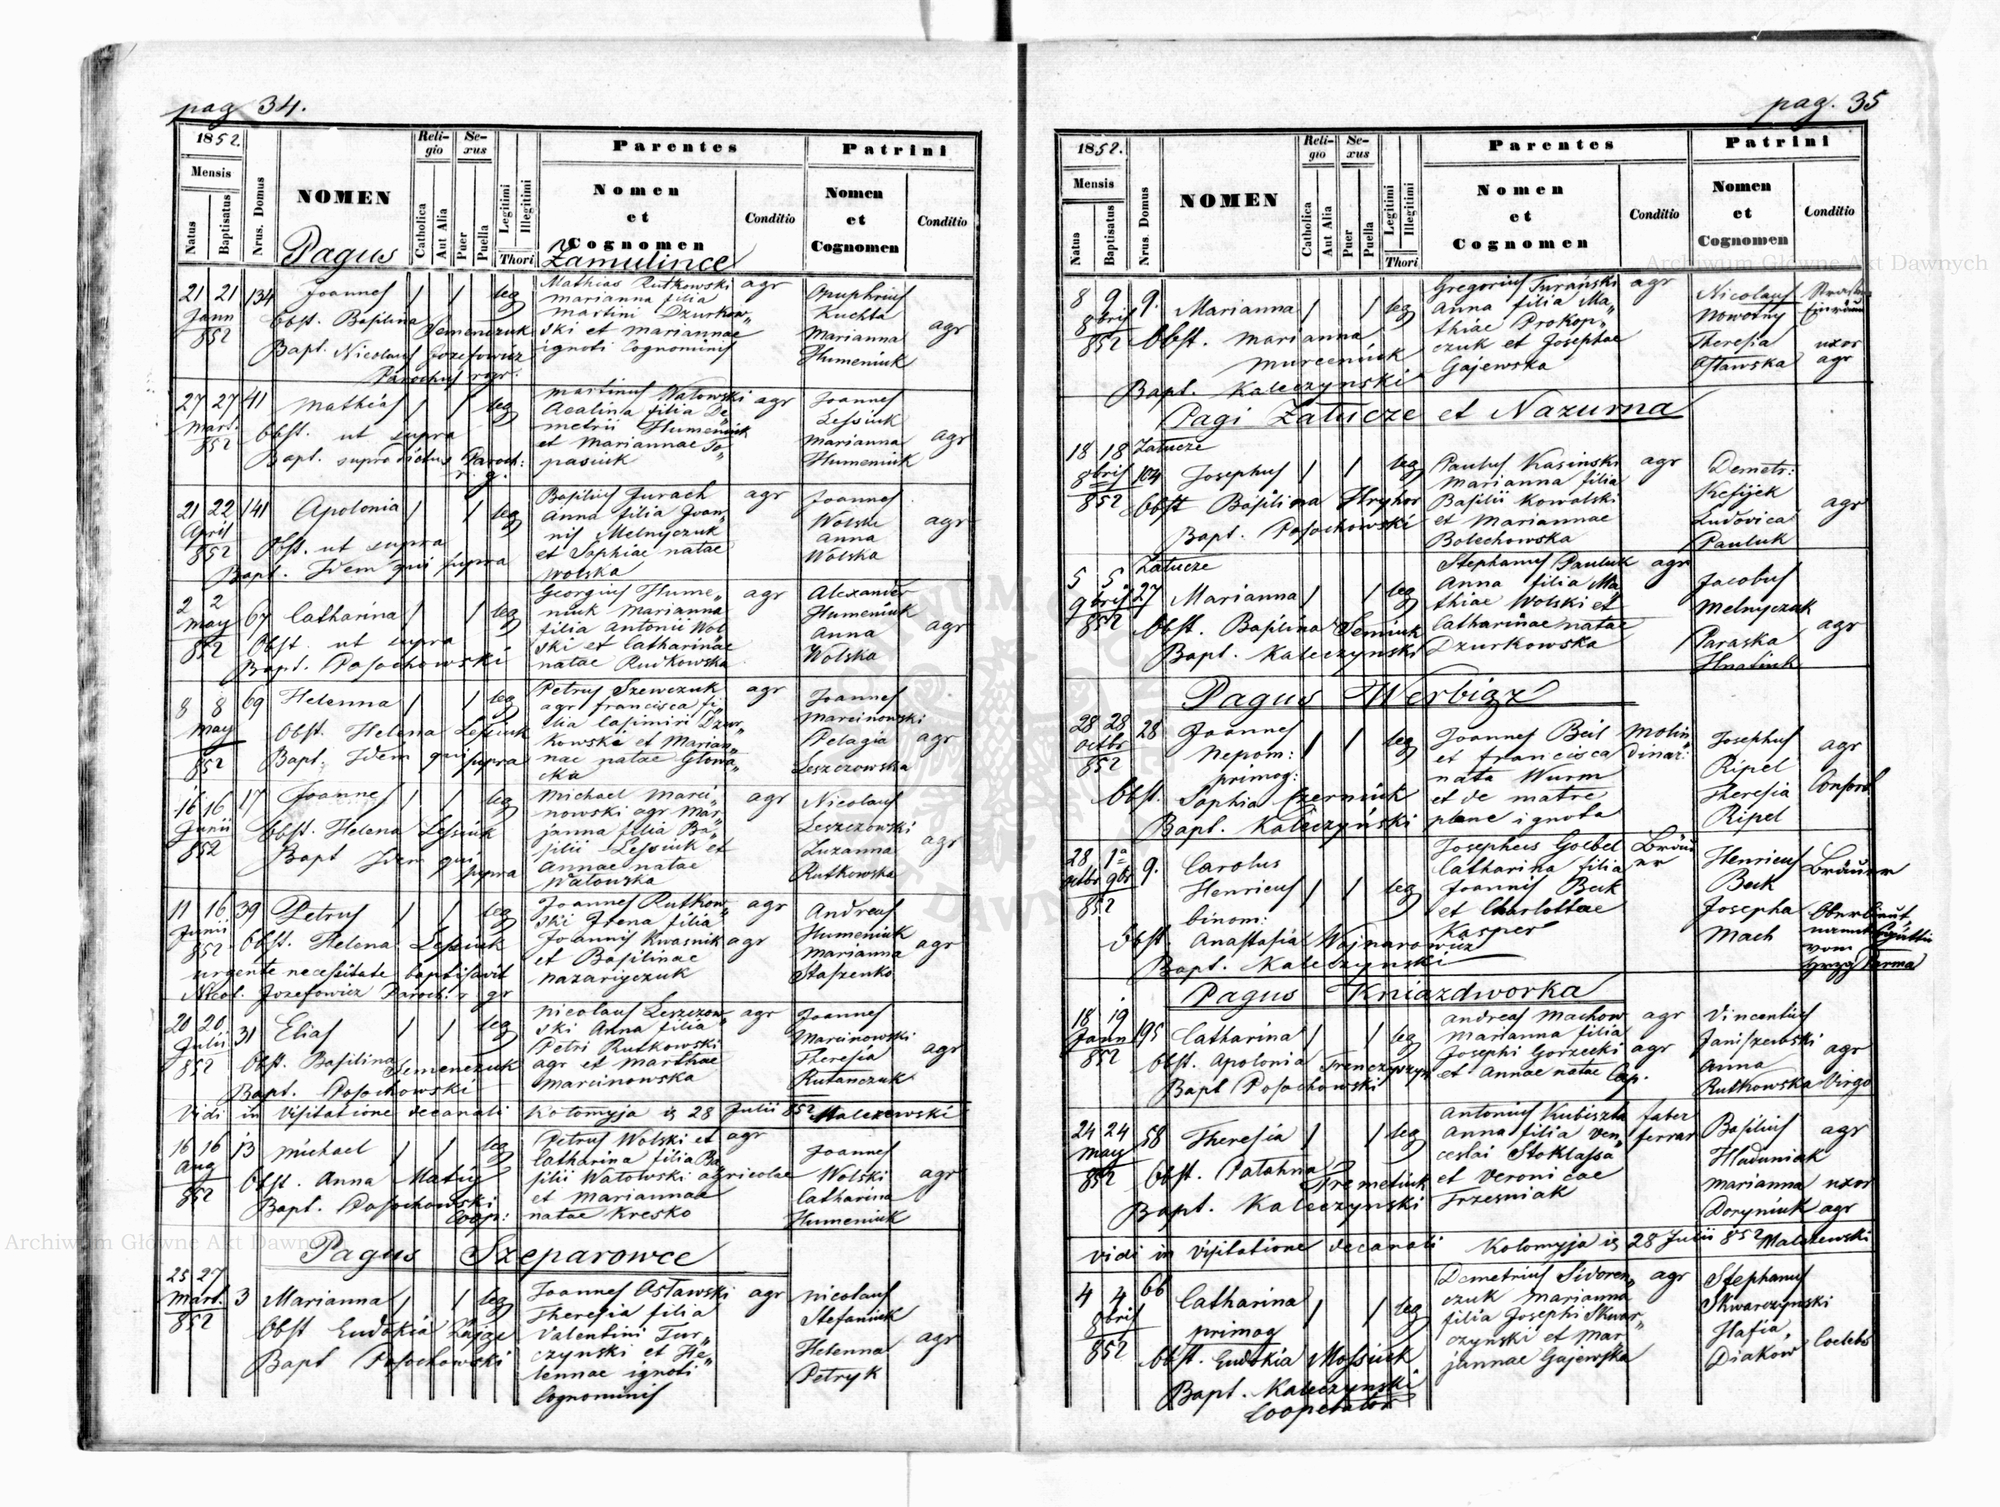 pag 34.
1852.
Mensis
Natus
Baptisatus
Nrus. Domus
NOMEN
Religio
Catholica
Aut Alia
Sexus
Puer
Puella
Legitimi
Illegitimi
Thori
Parentes
Nomen
et
Cognomen
Conditio
Patrini
Nomen
et
Cognomen
Conditio
Pagus Zamulince
21 21 134 Joannes 1 1 leg Mathias Rutkowski agr Onuphrius
Jann marianna filia Kuchta
852 Obst. Basilina Semenczuk martini Dzurkow„ Marianna agr
ski et mariannae Humeniuk
Bapt. Nicolaus Jozefowicz ignoti Cognominis
Parochus
27 27 41 Mathias 1 1 leg martinus Watowski agr Joannes
Mart. Acalina filia De„ Lessiuk
852 Obst. ut supra metrii Humeniuk Marianna agr
Bapt. supra dictus Paroch: et Mariannae To„ Humeniuk
r. g. pasiuk
21 22 141 Apolonia 1 1 leg Basilius Jurach agr Joannes
April Anna filia Joan„ Wolski agr
852 Obst. ut supra nis Melnyczuk Anna
Bapt. Idem qui supra et Sophiae natae Wolska
Wolska
2 2 67 Catharina 1 1 leg Georgius Hume„ agr Alexander
May niuk Marianna Humeniuk
852 Obst. ut supra filia Antonii Wol Anna agr
Bapt. Posochowski ski et Catharinae Wolska
natae Rutkowska
8 8 69 Helenna 1 1 leg Petrus Szewczuk agr Joannes
May agr francisca fi„ Marcinowski
852 Obst. Helena Lessiuk lia Casimiri Dzur„ Pelagia agr
Bapt. Idem qui supra kowski et Marian„ Leszczowska
nae natae Głowa„
cka
16 16 17 Joannes 1 1 leg Michael Marci„ agr Nicolaus
Junii nowski agr Mar„ Leszczowski
852 Obst. Helena Lessiuk janna filia Ba„ Zuzanna agr
Bapt Idem qui supra silii Lessiuk et Rutkowska
Annae natae
Watowska
11 16 39 Petrus 1 1 leg Joannes Rutkow„ agr Andreas
Junii ski Irena filia Humeniuk
852 Obst. Helena Lessiuk Joannis Kwasnik agr Marianna agr
urgente necessitate baptisavit et Basilinae Staszenko
Nicol. Jozefowicz Paroch. r gr nazariyczuk
20 20 31 Elias 1 1 leg Nicolaus Leszczow„ agr Joannes
Julii ski Anna filia Marcinowski
852 Obst. Basilina Semenczuk Petri Rutkowski Theresia agr
Bapt. Posochowski agr et Marthae Rutanczuk
Marcinowska
Vidi in Visitatione decanali Kołomyja is 28 Julii 852 Malczewski
16 16 13 Michael 1 1 leg Petrus Wolski et agr Joannes
Aug Catharina filia Ba Wolski agr
852 Obst. Anna Matiy silii Watowski agricolae Catharina
Bapt. Posochowski et Mariannae Humeniuk
Coop: natae Kresko
Pagus Szeparowce
25 27 3 Marianna 1 1 leg Joannes Ostawski agr Nicolaus
Mart. Theresia filia Stefaniuk
852 Obst Eudokia Zajac Valentini Tur„ Helenna agr
Bapt Posochowski czynski et He„ Petryk
lennae ignoti
Cognominis
pag. 35
1852.
Mensis
Natus
Baptisatus
Nrus. Domus
NOMEN
Religio
Catholica
Aut Alia
Sexus
Puer
Puella
Legitimi
Illegitimi
Thori
Parentes
Nomen
et
Cognomen
Conditio
Patrini
Nomen
et
Cognomen
Conditio
8 9 9. Marianna 1 1 leg Gregorius Turański agr Nicolaus
8bris Anna filia Ma„ Nowotny
852 Obst. Marianna thiae Prokop„ Theresia uxor
czuk et Josephae Ostawska agr
Bapt. Kaleczynski Gajewska
Pagi Zatucze et Nazurna
Zatucze
18 18 104 Josephus 1 1 leg Paulus Kasinski agr Demetr:
8bris Marianna filia Kefijek
852 Obst Basilina Hryhor Basilii Kowalski agr
Bapt. Posochowski et Mariannae Ludovica
Bolechowska Pauluk
Zatucze
5 5 27 Marianna 1 1 leg Stephanus Pauluk agr Jacobus
9bris Anna filia Ma„ Melnyczuk
852 Obst. Basilina Semiuk thiae Wolski et agr
Bapt. Kaleczynski Catharinae natae Paraska
Dzurkowska Hnatiuk
Pagus Werbiąż
28 28 28 Joannes 1 1 leg Joannes Beil Molin Josephus agr
octbr Nepom: et francisca dinar: Ripel
852 primog: nata Wurm Theresia Consort
Obst. Sophia Czerniuk et de matre Ripel
Bapt. Kaleczyński plane ignota
28 1a 9. Carolus 1 1 leg Josephus Goebel Bräu Henricus Bräuer
octbr 9br Henricus Catharina filia er Beck
852 binom: Joannis Beck Josepha Oberlieut
Obst. Anastasia Wojnarowicz et Charlottae Mach
Bapt. Kaleczynski Kasper vom
Parma
Pagus Kniazdworka
18 19 195 Catharina 1 1 leg Andreas Machow agr Vincentius
Jann Marianna filia Janiszewski
852 Obst. Apolonia Josephi Gorzecki agr Anna agr
Bapt Posochowski et Annae natae Cap. Rutkowska Virgo
24 24 58 Theresia 1 1 leg Antonius Kubiszta faber Basilius agr
May Anna filia Ven„ ferrar Hladuniak
852 Obst. Patahna Tremetiuk ceslai Stoklassa Marianna uxor
Bapt. Kaleczynski et Veronicae Doryniuk agr
Trzesniak
Vidi in Visitatione decanali Kołomyja is 28 Julii 852 Malczewski
4 4 66 Catharina 1 1 leg Demetrius Sidoren„ agr Stephanus
8bris primog czuk Marianna Skwarczynski
852 Obst. Eudokia Mossiuk filia Josephi Skwar„ Hafia
Bapt. Kaleczynski czynski et Mar„ Diakow Coelebs
Cooperator jannae Gajewska
Archiwum Główne Akt Dawnych
Archiwum Główne Akt Dawnych